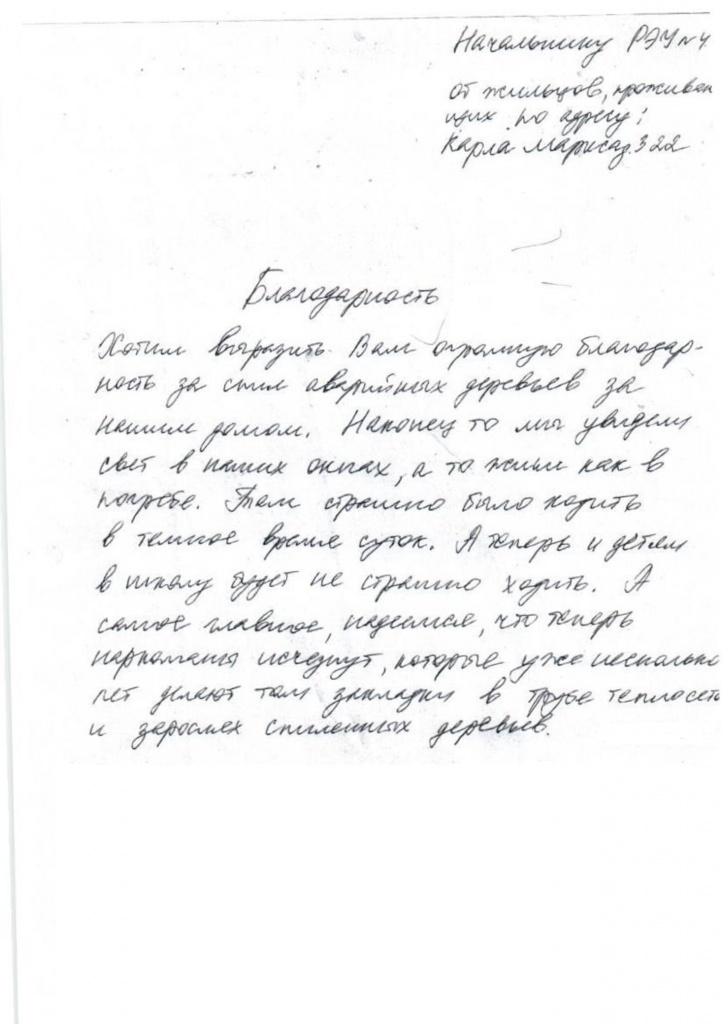 Начальнику РЭУ №4
от жильцов, проживаю
щих по адресу:
Карла Маркса д. 322
Благодарность
Хотим выразить Вам огромную благодар-
ность за спил аварийных деревьев за
нашим домом. Наконец то мы увидели
свет в наших окнах, а то жили как в
погребе. Там страшно было ходить
в темное время суток. А теперь и детям
в школу будет не страшно ходить. А
самое главное, надеемся, что теперь
наркоманы исчезнут, которые уже несколько
лет делают там закладки в трубе теплосети
и зарослях спиленных деревьев.